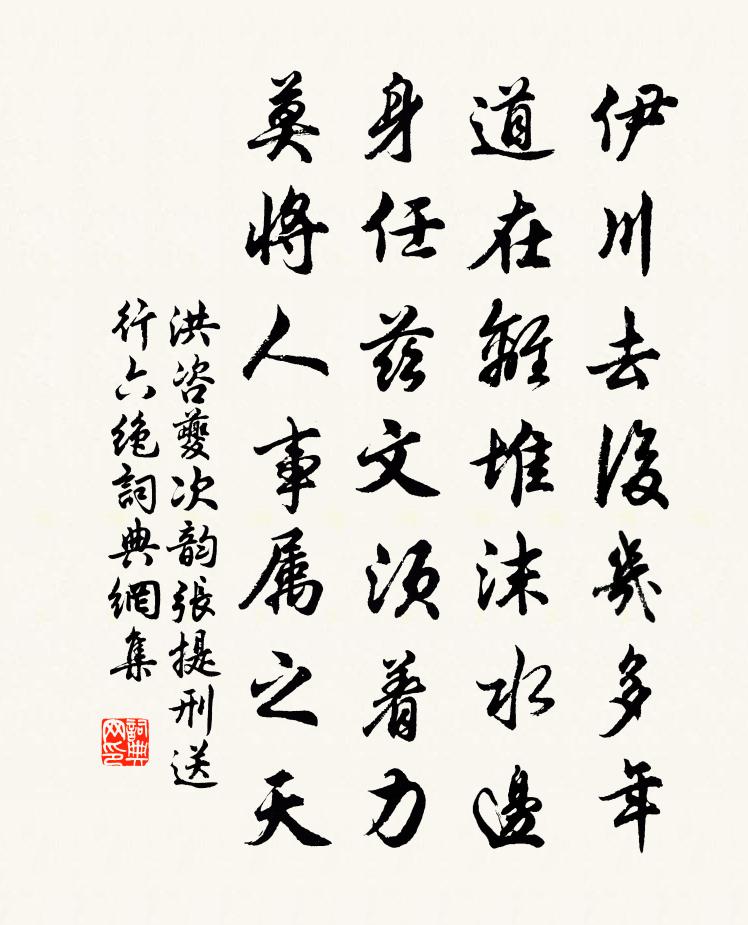 伊川去後幾多年
道在離堆沫水邊
身任茲文須着力
莫將人事属之天
洪咨夔次韵張提刑送
行六绝詞典網集
詞典網印